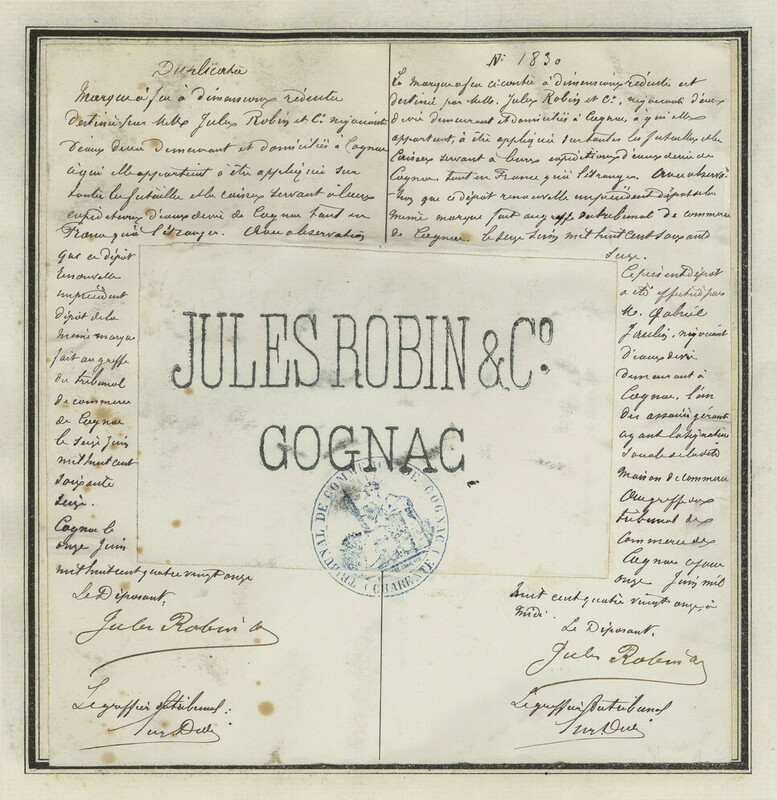 Duplicata
Marque à feu à dimensions réduites
destinée par MM. Jules Robin et Cie négociants
d'eaux de vie demeurant et domiciliés à Cognac
à qui elle appartient à être appliquée sur
toutes les futailles et les caisses servant à leurs
expéditions d'eaux de vie de Cognac tant en
France qu'à l'étranger. Avec observation
que ce dépôt
renouvelle
un précédent
dépôt de la
même marque
fait au greffe
du tribunal
de commerce
de Cognac
le seize Juin
mil huit cent
soixante
seize.
Cognac le
onze Juin
mil huit cent quatre vingt onze
Le Déposant,
Jules Robin &
Le greffier du tribunal:
No 1830
La marque à feu ci contre à dimensions réduites est
destinée par MM. Jules Robin et Cie, négociants d'eaux
de vie demeurant et domiciliés à Cognac, à qui elle
appartient, à être appliquée sur toutes les futailles et les
Caisses servant à leurs expéditions d'eaux de vie de
Cognac tant en France qu'à l'étranger. Avec observa-
tion que ce dépôt renouvelle un précédent dépôt de la
même marque fait au greffe du tribunal de commerce
de Cognac. le seize Juin mil huit cent soixante
seize.
Ce présent dépôt
a été effectué par
M. Gabriel
Jaulin, négociant
d'eaux de vie
demeurant à
Cognac, l'un
des associés gérants
ayant la signature
sociale de la dite
maison de commerce
Au greffe du
tribunal de
Commerce de
Cognac ce jour
onze Juin mil
huit cent quatre vingt onze, à
midi.
Le Déposant,
Jules Robin &
Le greffier du tribunal
JULES ROBIN & Co
COGNAC
TRIBUNAL DE COMMERCE DE COGNAC (CHARENTE)